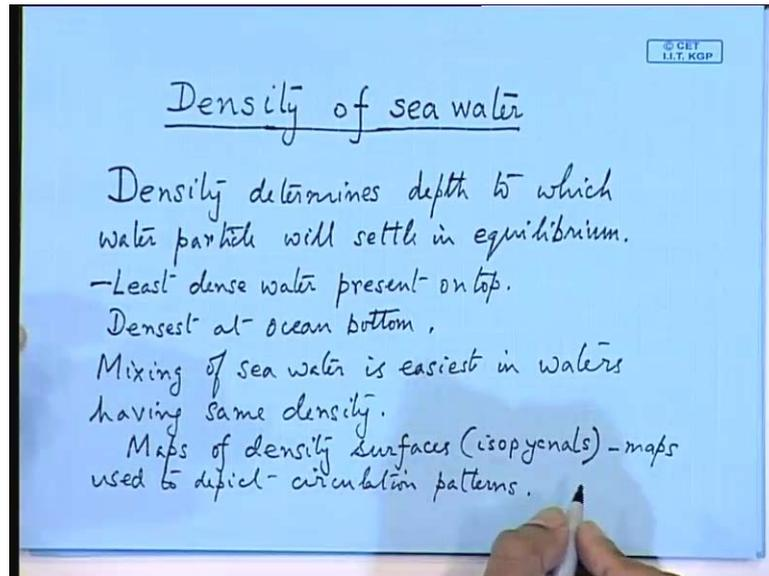 © CET
I.I.T. KGP
Density of sea water
Density determines depth to which
water particle will settle in equilibrium.
-Least dense water present on top.
Densest at ocean bottom.
Mixing of sea water is easiest in waters
having same density.
Maps of density surfaces (isopycnals) - maps
used to depict circulation patterns.